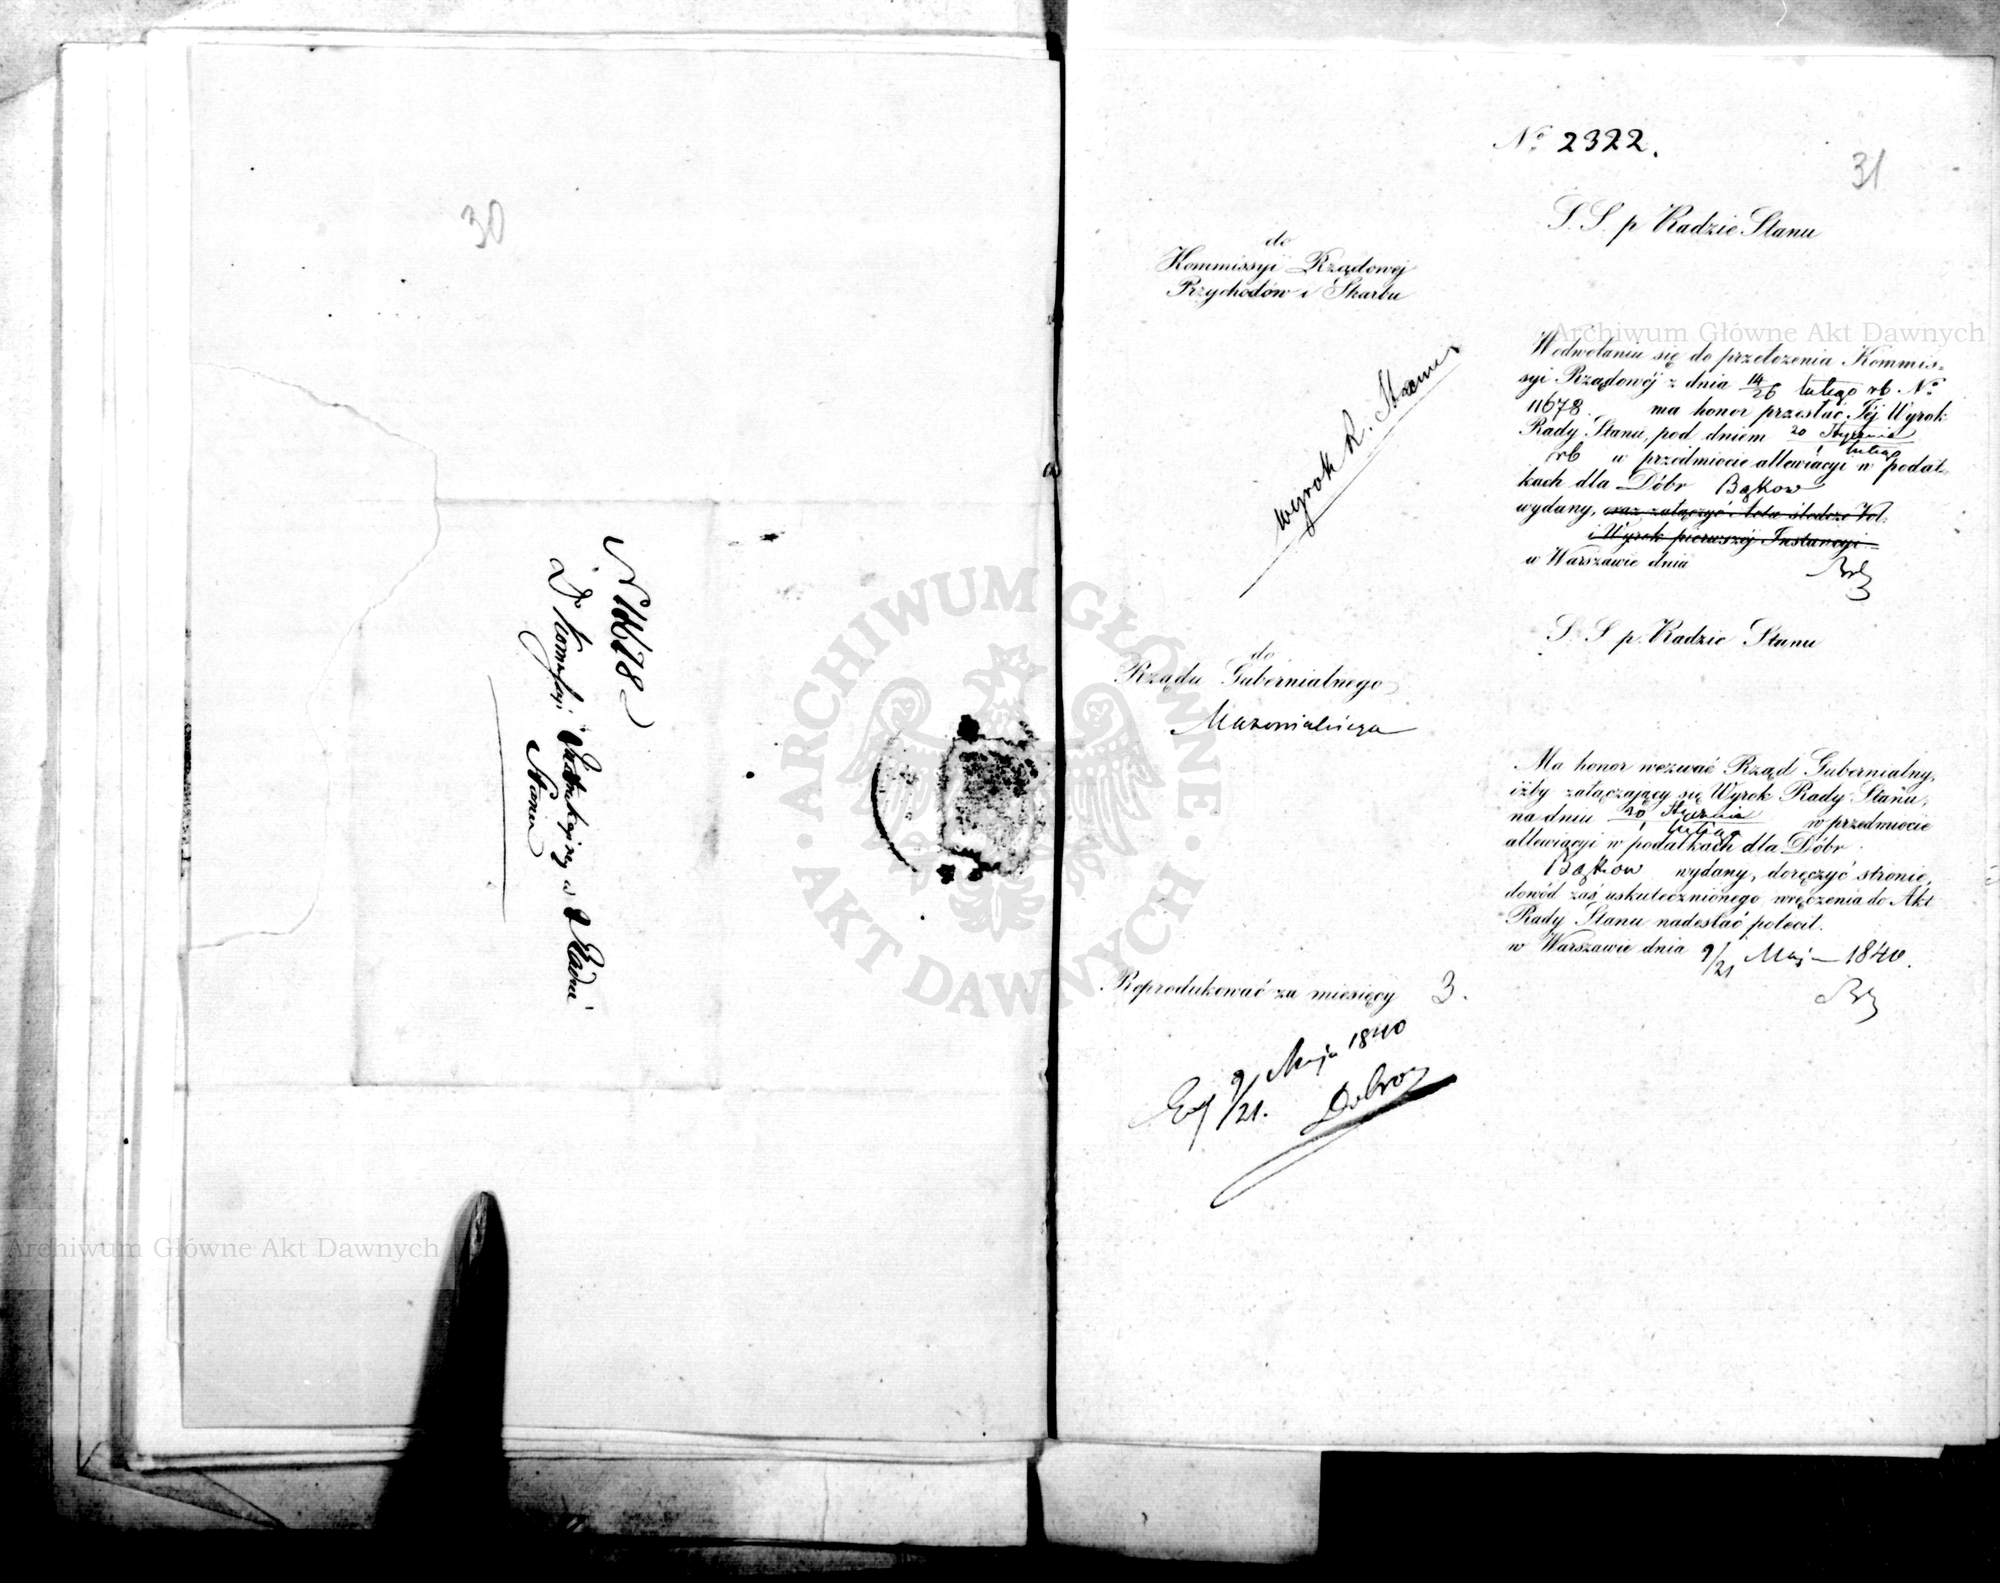 30
N 11678
Do Kommissyi
w Radzie
Stanu
No 2322.
31
do
Kommissyi Rządowej
Przychodów i Skarbu
S. S. p Radzie Stanu
Wodwołaniu się do przełożenia Kommis=
syi Rządowéj z dnia 14/26 lutego rb. No
11678. ma honor przesłać Téj Wyrok
Rady Stanu, pod dniem 20 Stycznia
1 lutego
rb w przedmiocie allewiacyi w podat=
kach dla Dóbr Bąkow
wydany, oraz załączyć Akta śledcze Vol:
i Wyrok pierwszéj Instancyi
w Warszawie dnia
wyrok R. Stanu
do
Rządu Gubernialnego
Mazowieckiego
S. S p. Radzie Stanu
Ma honor wezwać Rząd Gubernialny,
iżby załączający się Wyrok Rady Stanu,
na dniu 20 Stycznia w przedmiocie
1 lutego
allewiacyi w podatkach dla Dóbr
Bąkow wydany, doręczyć stronie,
dowód zaś uskutecznionego wręczenia do Akt
Rady Stanu nadesłać polecił.
w Warszawie dnia 9/21 Maja 1840.
Reprodukować za miesięcy 3.
9/21. Maja 1840
ARCHIWUM GŁÓWNE
AKT DAWNYCH
Archiwum Główne Akt Dawnych
Archiwum Główne Akt Dawnych